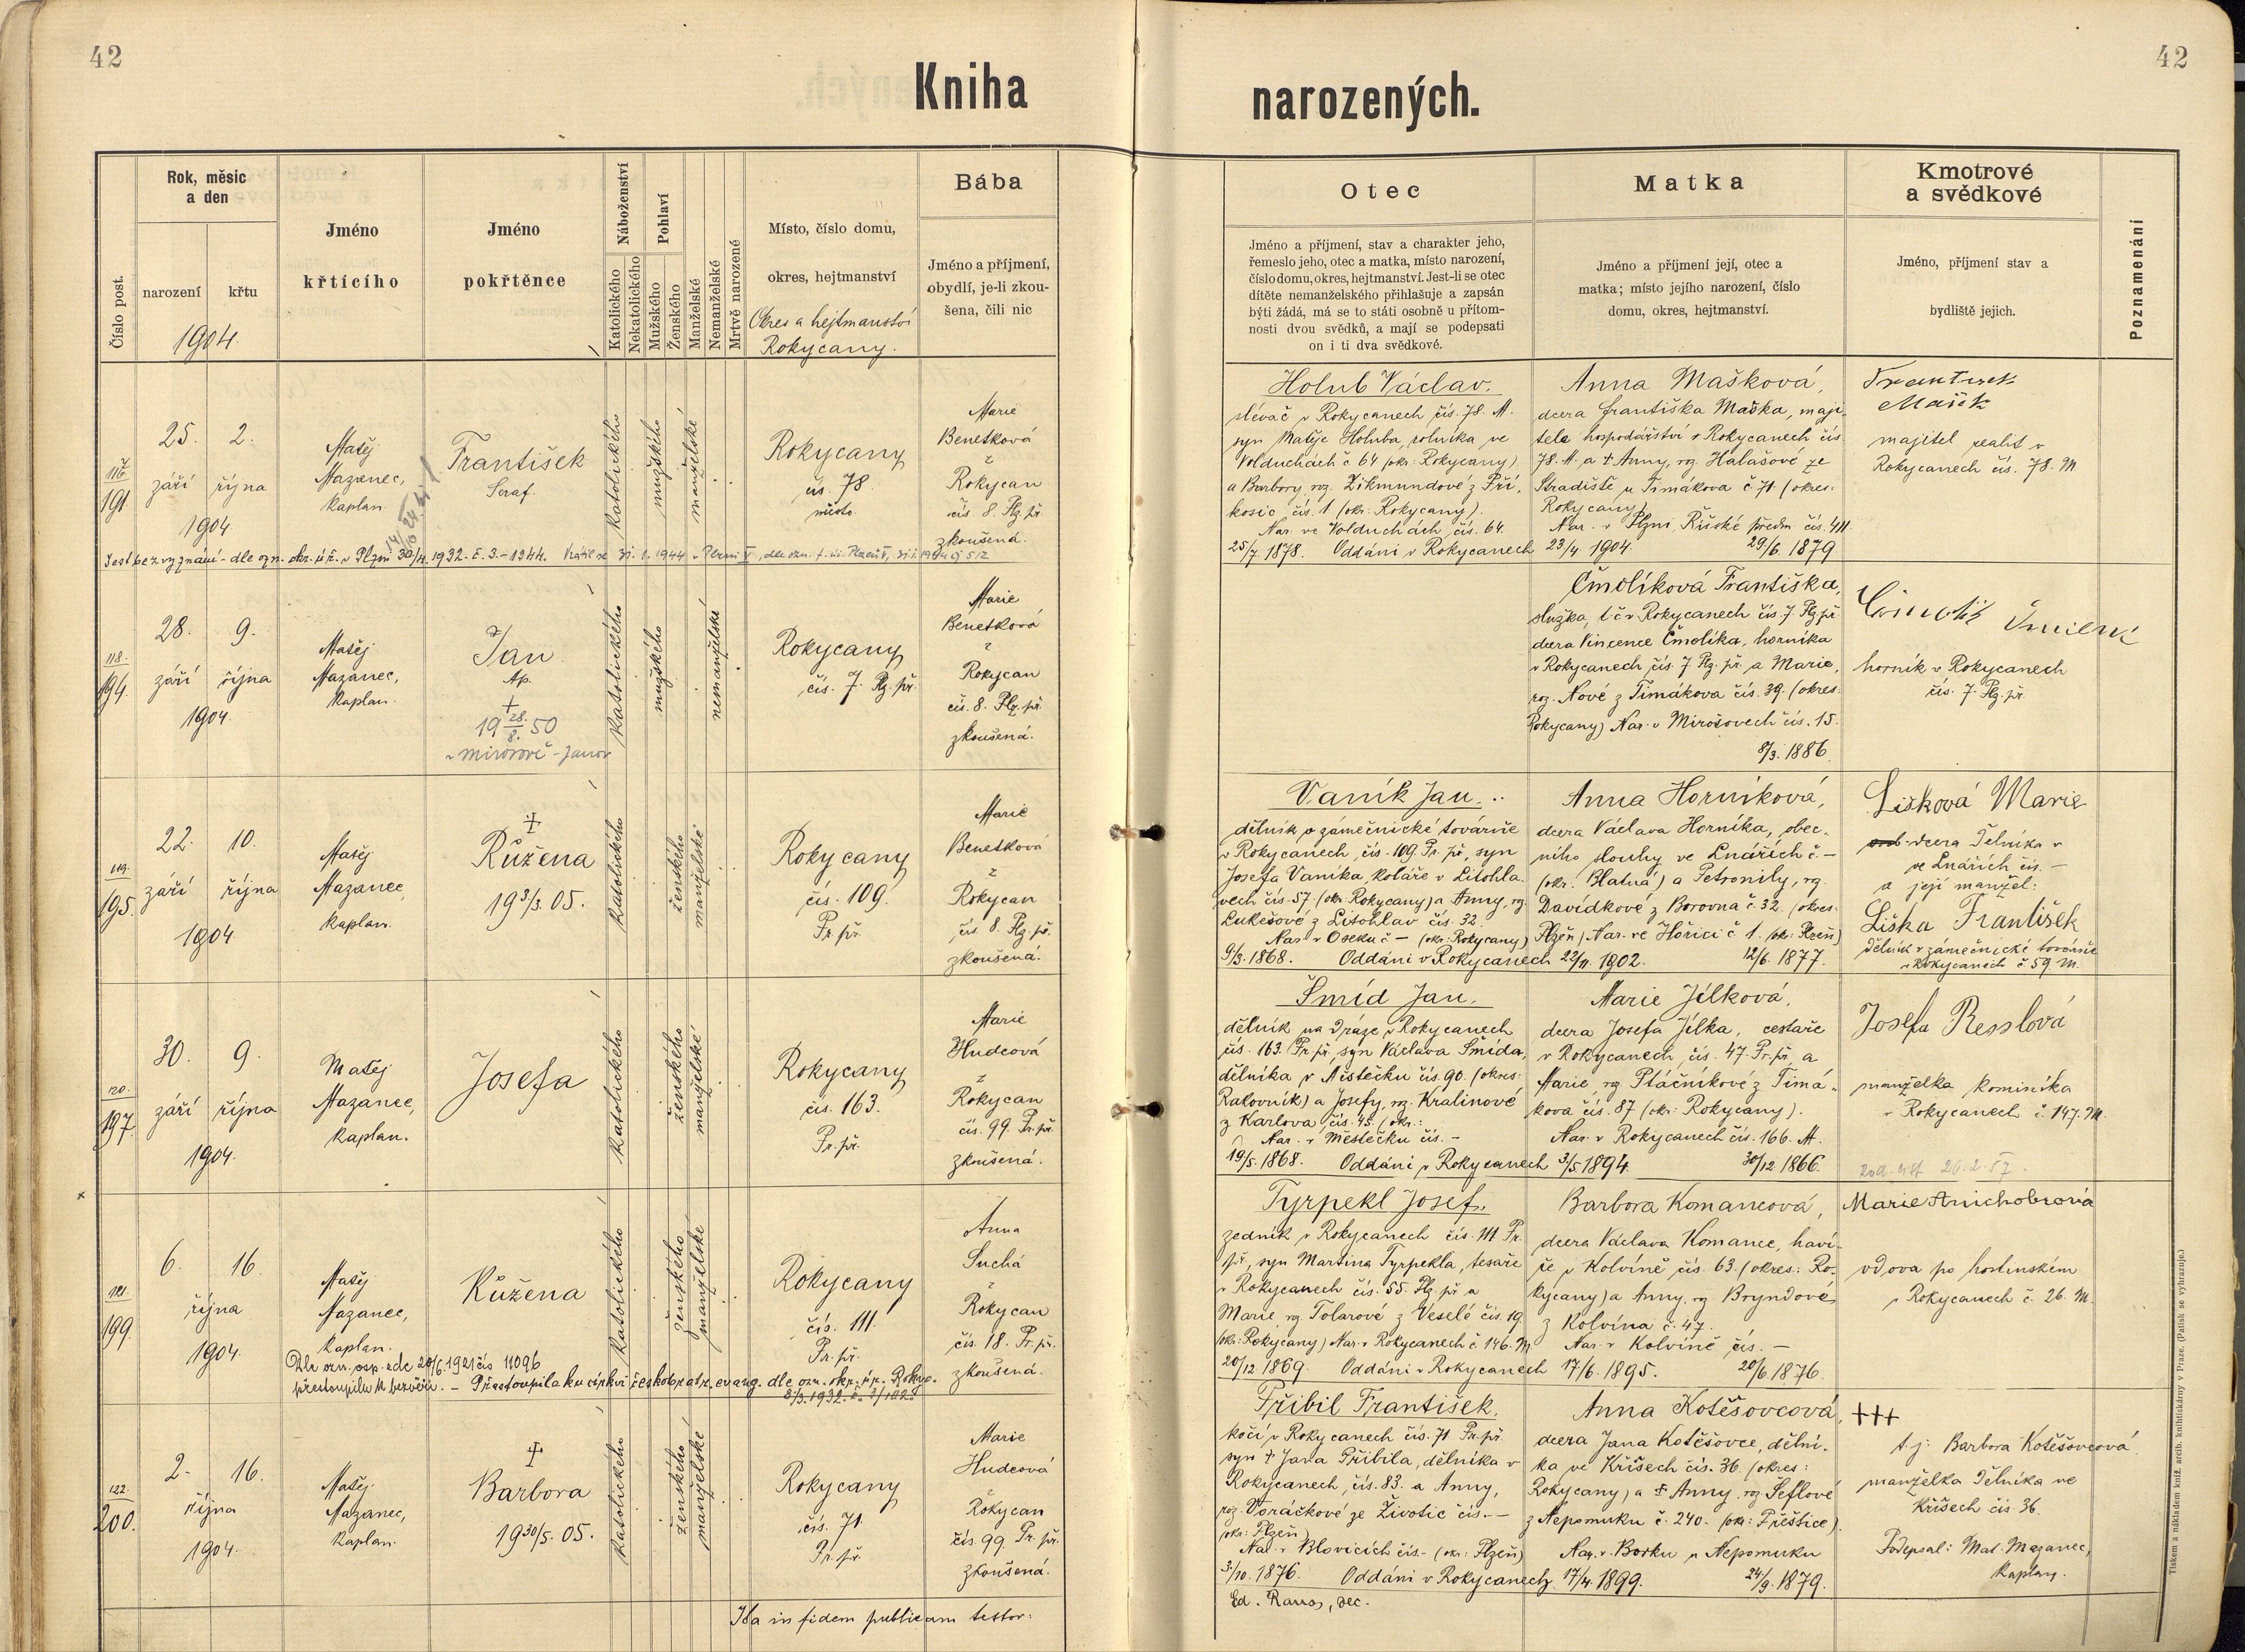 42
42
Kniha
narozených.
Číslo post.
Rok, měsíc
a den
narození
křtu
1904.
Jméno
křtícího
Jméno
pokřtěnce
Náboženství
Katolického
Nekatolického
Pohlaví
Mužského
Ženského
Manželské
Nemanželské
Mrtvě narozené
Místo, číslo domu,
okres, hejtmanství
Okres a hejtmanství
Rokycany.
Bába
Jméno a příjmení,
obydlí, je-li zkou-
šena, čili nic
Otec
Jméno a příjmení, stav a charakter jeho,
řemeslo jeho, otec a matka, místo narození,
číslo domu, okres, hejtmanství. Jest-li se otec
dítěte nemanželského přihlašuje a zapsán
býti žádá, má se to státi osobně u přítom-
nosti dvou svědků, a mají se podepsati
on i ti dva svědkové.
Matka
Jméno a příjmení její, otec a
matka; místo jejího narození, číslo
domu, okres, hejtmanství.
Kmotrové
a svědkové
Jméno, příjmení stav a
bydliště jejich.
Poznamenání
191.
25. 2.
září října
1904
Matěj
Mazanec,
kaplan
František
Seraf.
katolického
mužského
manželské
Rokycany
čís. 78
město.
Marie
Benetková
z
Rokycan
čís. 8. Plz. př.
zkoušená.
Jest bez vyznání - dle ozn. okr. úř. v Plzni 30/4. 1932. č. 3.-1344.
Holub Václav.
slévač v Rokycanech čís. 78. M.
syn Matěje Holuba, rolníka ve
Volduchách č 64 (okr: Rokycany)
a Barbory roz. Zikmundové z Pří-
kosic čís. 1 (okr: Rokycany).
Nar. ve Volduchách čís. 64.
25/7 1878. Oddáni v Rokycanech 23/4 1904.
Anna Mašková,
dcera Františka Maška, maji-
tele hospodářství v Rokycanech čís
78. M. a + Anny, roz. Halašové ze
Stradiště u Timákova č. 71 (okres:
Rokycany)
Nar. v Plzni Říšské předm. čís. 411
29/6. 1879
František
Mašek
majitel realit v
Rokycanech čís. 78. M
118.
194.
28. 9.
září října
1904.
Matěj
Mazanec,
kaplan.
Jan
Ap.
+
19 28./8. 50
v Mirošově - Janov
katolického
mužského
nemanželské
Rokycany
čís. 7. Plz. př.
Marie
Benetková
z
Rokycan
čís. 8. Plz. př.
zkoušená.
Čmolíková Františka,
služka, t. č. v Rokycanech čís. 7 Plz. př.
dcera Vincence Čmolíka, horníka
v Rokycanech čís. 7 Plz. př. a Marie,
roz. Nové z Timákova čís. 39. (okres:
Rokycany) Nar. v Mirošovech čís. 15.
8/3. 1886.
horník v Rokycanech
čís. 7. Plz. př.
119.
195.
22. 10.
září října
1904
Matěj
Mazanec,
kaplan.
+
Růžena
19 3/3. 05.
katolického
ženského
manželské
Rokycany
čís. 109.
Pr. př.
Marie
Benetková
z
Rokycan
čís. 8. Plz. př.
zkoušená.
Vaník Jan.
dělník v zámečnické továrně
v Rokycanech, čís. 109. Pr. př., syn
Josefa Vaníka, koláře v Litohla-
vech čís. 57. (okr: Rokycany) a Anny, roz.
Lukešové z Litohlav čís. 32.
Nar. v Oseku č — (okr: Rokycany)
9/3. 1868. Oddáni v Rokycanech 22/11. 1902.
Anna Horníková,
dcera Václava Horníka, obec-
ního slouhy ve Lnářích č. —
(okr: Blatná) a Petronily, roz.
Davídkové z Borovna č. 32. (okres:
Plzeň) Nar. ve Hořici č 1. (okr. Plzeň)
12/6. 1877.
Lišková Marie
dcera dělníka v
ve Lnářích čís. —
a její manžel:
Liška František
dělník v zámečnické továrně
v Rokycanech č 59. M.
120.
197.
30. 9.
září října
1904.
Matěj
Mazanec,
kaplan.
Josefa
katolického
ženského
manželské
Rokycany
čís. 163.
Pr. př.
Marie
Hudcová
z
Rokycan
čís. 99. Pr. př.
zkoušená.
Šmíd Jan.
dělník na dráze v Rokycanech
čís. 163. Pr. př. syn Václava Šmída,
dělníka v Městečku čís. 90. (okres:
Rakovník) a Josefy, roz. Kralinové
z Karlova čís. 45. (okr.:
Nar. v Městečku čís. -
19/5. 1868. Oddáni v Rokycanech 3/5. 1894.
Marie Jílková,
dcera Josefa Jílka, cestáře
v Rokycanech čís. 47. Pr. př. a
Marie, roz. Ptáčníkové z Timá-
kova čís. 87 (okr: Rokycany).
Nar. v Rokycanech čís. 166. M.
30/12 1866.
Josefa Resslová
manželka kominíka
v Rokycanech č. 147. M.
rod. list 26.2.57.
121.
199.
6. 16.
října
1904.
Matěj
Mazanec,
kaplan.
Růžena
katolického
ženského
manželské
Rokycany
čís. 111.
Pr. př.
Anna
Suchá
z
Rokycan
čís. 18. Pr. př.
zkoušená.
přestoupila k bezvěří. - Přestoupila ku církvi českobratr. evang. dle ozn. okr. úř. Rokyc.
Tyrpekl Josef.
zedník v Rokycanech čís. 111 Pr.
př., syn Martina Tyrpekla, tesaře
v Rokycanech čís. 55. Plz. př. a
Marie, roz. Tolarové z Veselé čís. 19
(okr: Rokycany) Nar. v Rokycanech č. 146. M.
20/12 1869. Oddáni v Rokycanech 17/6. 1895.
Barbora Komancová,
dcera Václava Komance, haví-
ře v Kolvíně čís. 63. (okres: Ro-
kycany) a Anny, roz. Bryndové
z Kolvína č. 47.
Nar. v Kolvíně čís. —
20/6. 1876.
vdova po hostinském
v Rokycanech č. 26. M.
122.
200.
2. 16.
října
1904.
Matěj
Mazanec,
kaplan.
+
Barbora
19 30/5. 05.
katolického
ženského
manželské
Rokycany
čís. 71.
Pr. př.
Marie
Hudcová
z
Rokycan
čís. 99. Pr. př.
zkoušená.
Přibil František.
kočí v Rokycanech čís. 71 Pr. př.
syn + Jana Přibila, dělníka v
Rokycanech, čís. 83. a Anny,
roz. Voráčkové ze Životic čís. —
(okr: Plzeň)
Nar. v Blovicích čís. - (okr: Plzeň)
3/10. 1876. Oddáni v Rokycanech 17/4. 1899.
Anna Kotěšovcová,
dcera Jana Kotěšovce, dělní-
ka ve Kříšech čís. 36. (okres:
Rokycany) a + Anny, roz. Šeflové
z Nepomuku č. 240. (okr: Přeštice)
Nar. v Borku u Nepomuku
24/9. 1879.
+++
t. j. Barbora Kotěšovcová
manželka dělníka ve
Kříšech čís. 36.
Podepsal: Mat. Mazanec,
kaplan.
Ita in fidem publicam testor:
Tiskem a nákladem kníž. arcib. knihtiskárny v Praze. (Patisk se vyhrazuje.)